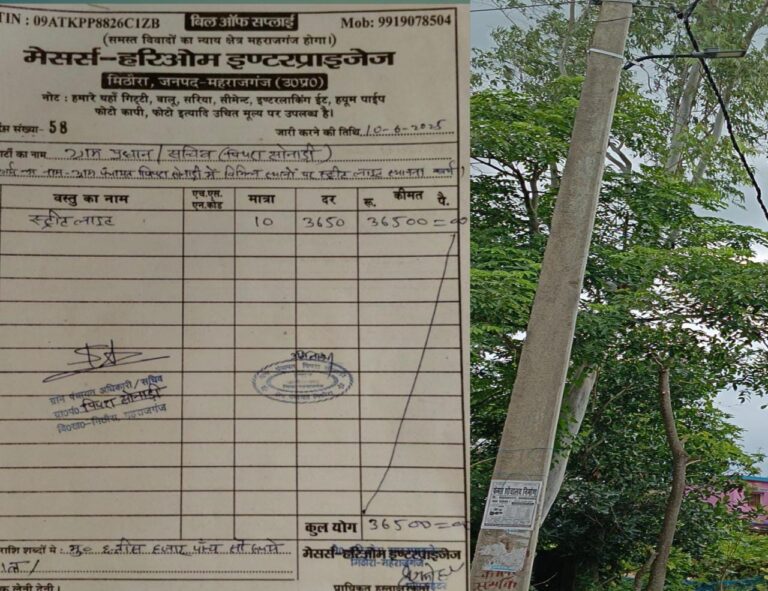 TIN : 09ATKPP8826C1ZB बिल ऑफ सप्लाई Mob: 9919078504
(समस्त विवादों का न्याय क्षेत्र महराजगंज होगा।)
मेसर्स-हरिओम इण्टरप्राइजेज
मिठौरा, जनपद-महराजगंज (उ०प्र०)
नोट : हमारे यहाँ गिट्टी, बालू, सरिया, सीमेन्ट, इण्टरलाकिंग ईट, ह्यूम पाईप
फोटो कापी, फोटो इत्यादि उचित मूल्य पर उपलब्ध है।
संख्या- 58 जारी करने की तिथि 10-6-2025
का नाम ग्राम प्रधान / सचिव (पिपरा सोनाड़ी)
का नाम- ग्राम पंचायत पिपरा सोनाड़ी में विभिन्न स्थलों पर स्ट्रीट लाइट स्थापना कार्य
वस्तु का नाम एच.एस. एन.कोड मात्रा दर रू. कीमत पै.
स्ट्रीट लाइट 10 3650 36500=00
ग्राम पंचायत अधिकारी/सचिव
ग्रा०पं० पिपरा सोनाड़ी
वि०ख०-मिठौरा, महराजगंज
कुल योग 36500=00
राशि शब्दों में : मु० छत्तीस हजार पाँच सौ रूपये
मेसर्स-हरिओम इण्टरप्राइजेज
मिठौरा-महराजगंज
लेनी देनी।